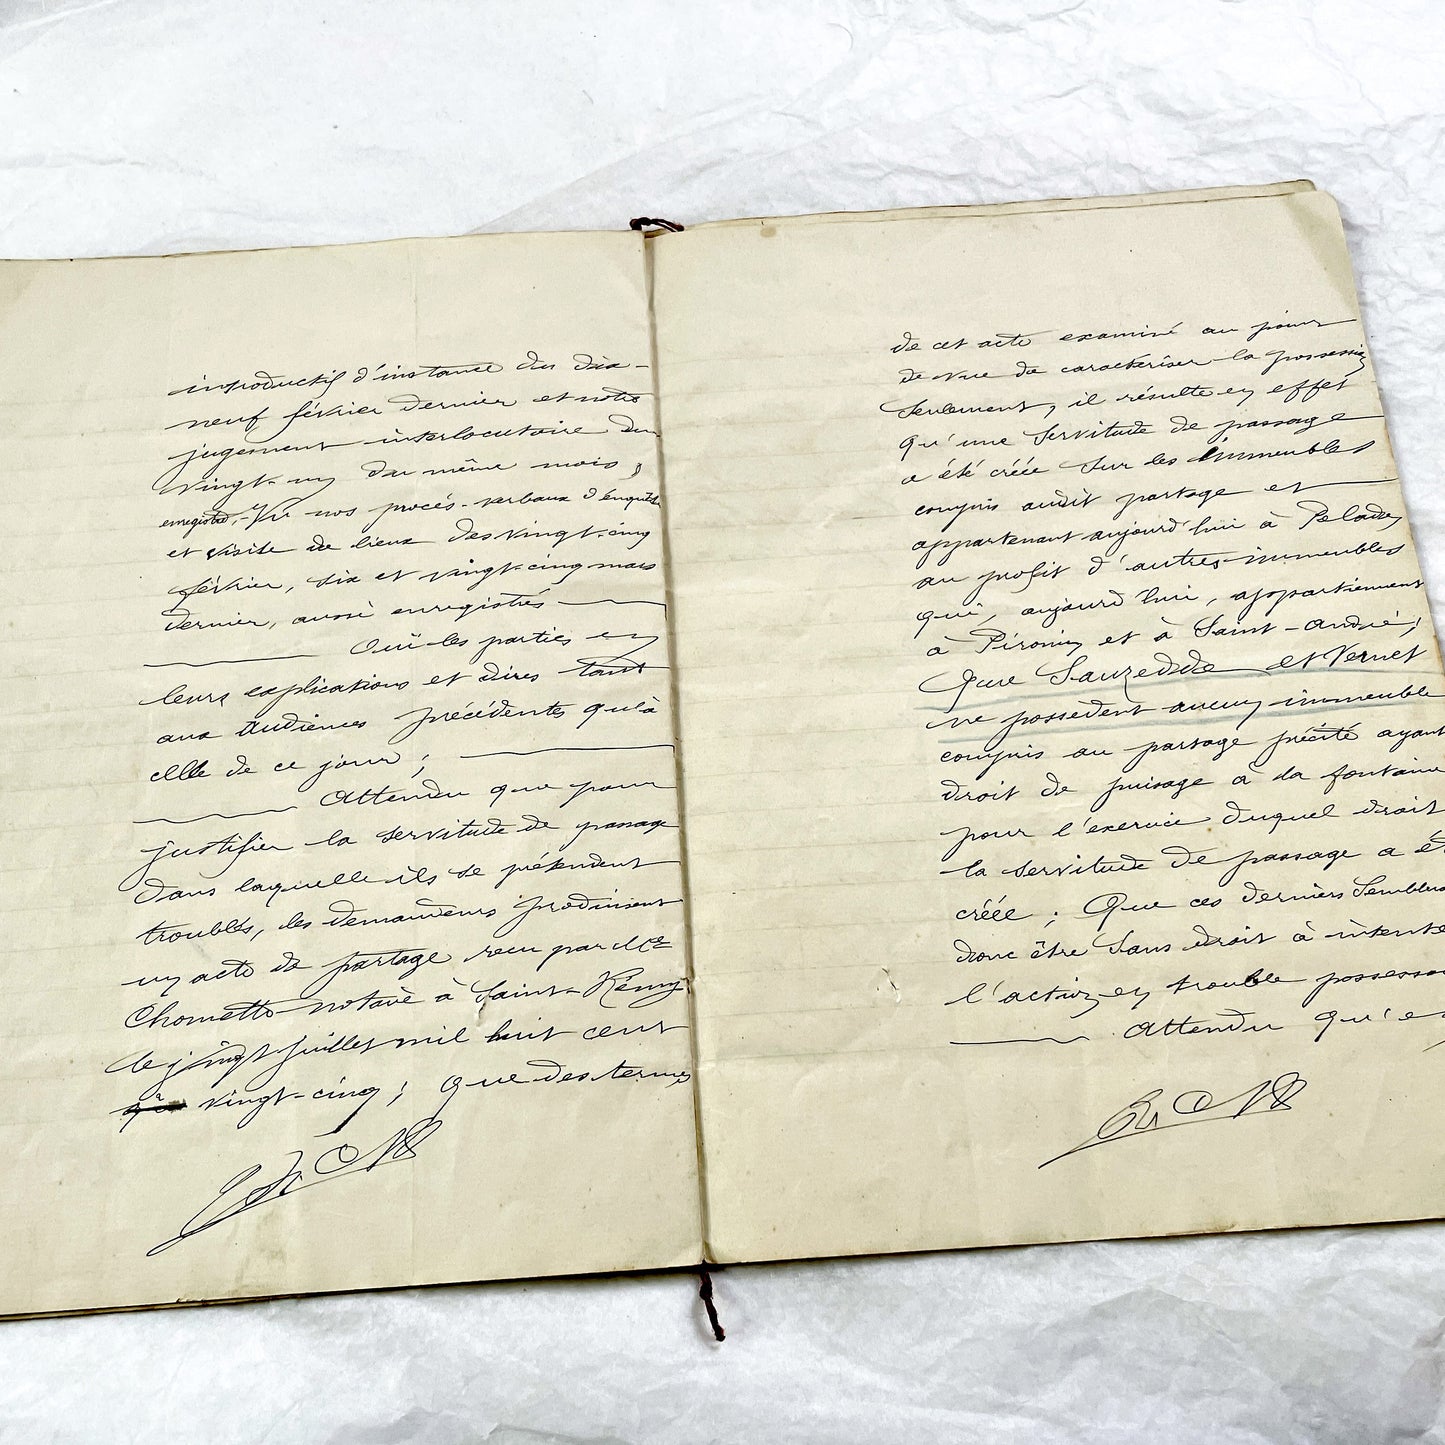 introductif d'instance du dix-
neuf février dernier et notre
jugement interlocutoire du
vingt-un du même mois,
enregistré,- Vu nos procés-verbaux d'enquête
et visite de lieux des vingt-cinq
février, six et vingt-cinq mars
dernier, aussi enregistrés
Ouï les parties en
leurs explications et dires tant
aux audiences précédentes qu'à
celle de ce jour ;
Attendu que pour
justifier la servitude de passage
dans laquelle ils se prétendent
troublés, les demandeurs produisent
un acte de partage reçu par Me
Chometto notaire à Saint-Rémy
le vingt juillet mil huit cent
vingt-cinq ; que des termes
de cet acte examiné au point
de vue de caractériser la possession
seulement, il résulte en effet
qu'une servitude de passage
a été créée sur les immeubles
compris audit partage et
appartenant aujourd'hui à Peladey
au profit d'autres immeubles
qui, aujourd'hui, appartiennent
à Pironin et à Saint-André ;
Que Sauzedde et Vernet
ne possedent aucun immeuble
compris au partage précité ayant
droit de puisage à la fontaine
pour l'exercice duquel droit
la servitude de passage a ét
créée ; Que ces derniers semblent
donc être sans droit à intente
l'action en trouble possesso
Attendu qu'e